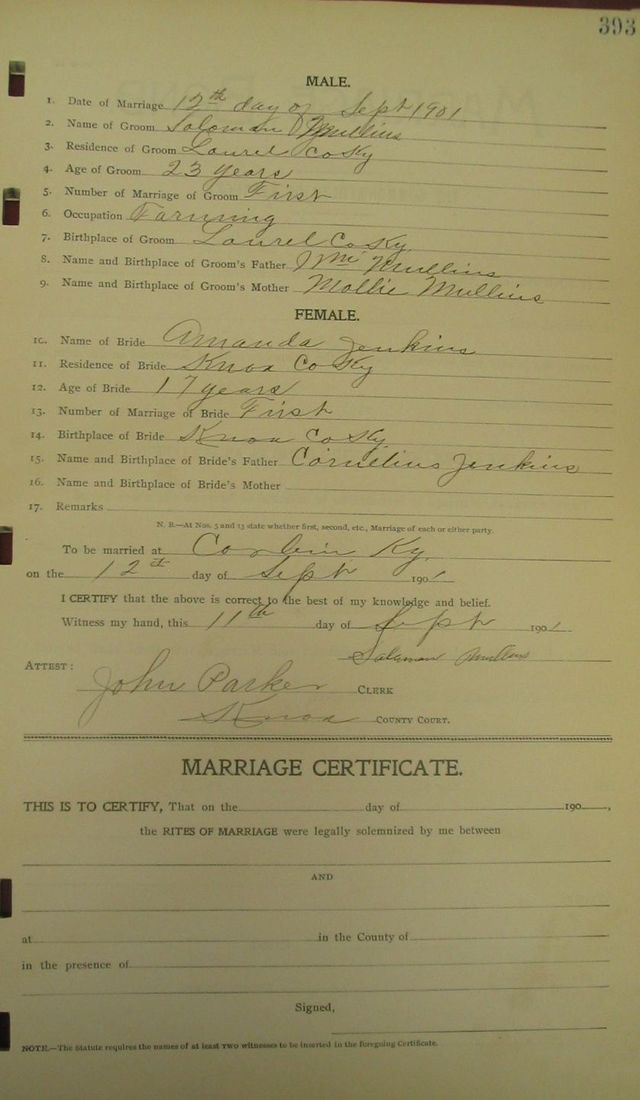 393
MALE.
1. Date of Marriage 12th day of Sept 1901
2. Name of Groom Soloman Mullins
3. Residence of Groom Laurel Co Ky
4. Age of Groom 23 years
5. Number of Marriage of Groom First
6. Occupation Farming
7. Birthplace of Groom Laurel Co Ky.
8. Name and Birthplace of Groom's Father Wm Mullins
9. Name and Birthplace of Groom's Mother Mollie Mullins
FEMALE.
10. Name of Bride Amanda Jenkins
11. Residence of Bride Knox Co Ky
12. Age of Bride 17 years
13. Number of Marriage of Bride First
14. Birthplace of Bride Knox Co Ky
15. Name and Birthplace of Bride's Father Cornelius Jenkins
16. Name and Birthplace of Bride's Mother
17. Remarks
N. B.—At Nos. 5 and 13 state whether first, second, etc., Marriage of each or either party.
To be married at Corbin Ky.
on the 12th day of Sept 1901
I CERTIFY that the above is correct to the best of my knowledge and belief.
Witness my hand, this 11th day of Sept 1901
Solaman Mullins
ATTEST:
John Parker CLERK
Knox COUNTY COURT.
MARRIAGE CERTIFICATE.
THIS IS TO CERTIFY, That on the day of 190 ,
the RITES OF MARRIAGE were legally solemnized by me between
AND
at in the County of
in the presence of
Signed,
NOTE.—The Statute requires the names of at least two witnesses to be inserted in the foregoing Certificate.